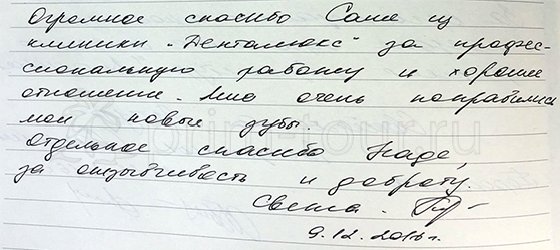 Огромное спасибо Саше из
клиники "Денталюкс" за профес-
сиональную работу и хорошее
отношение. Мне очень понравились
мои новые зубы.
Отдельное спасибо Наде,
за отзывчивость и доброту.
Света.
9.12.2016г.
primetour.ru